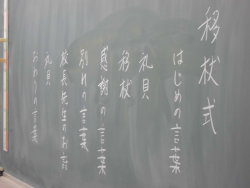 移杖式
はじめの言葉
礼貝
移杖
感謝の言葉
別れの言葉
校長先生のお話
礼貝
おわりの言葉